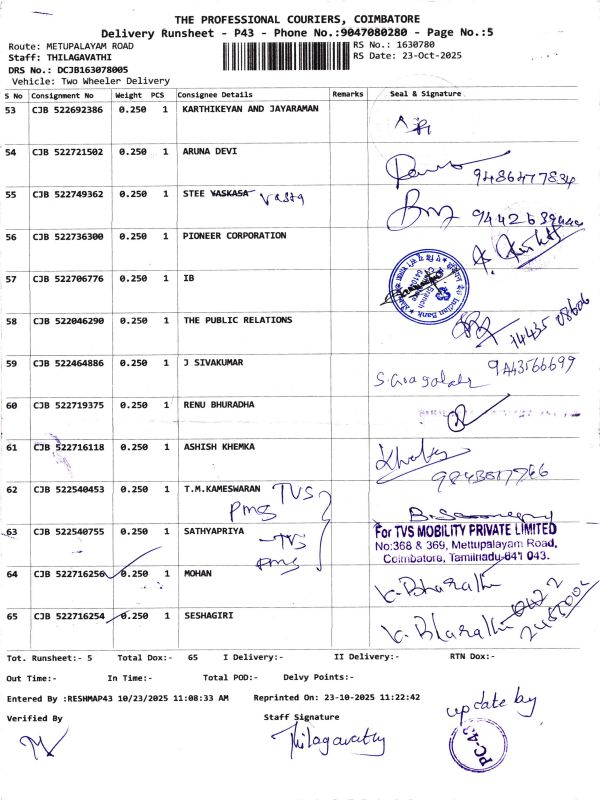 THE PROFESSIONAL COURIERS, COIMBATORE
Delivery Runsheet - P43 - Phone No.:9047080280 - Page No.:5
Route: METUPALAYAM ROAD RS No.: 1630780
Staff: THILAGAVATHI RS Date: 23-Oct-2025
DRS No.: DCJB163078005
Vehicle: Two Wheeler Delivery
S No Consignment No Weight PCS Consignee Details Remarks Seal & Signature
53 CJB 522692386 0.250 1 KARTHIKEYAN AND JAYARAMAN
54 CJB 522721502 0.250 1 ARUNA DEVI 9486477834
55 CJB 522749362 0.250 1 STEE VASKASA Vasta
56 CJB 522736300 0.250 1 PIONEER CORPORATION
57 CJB 522706776 0.250 1 IB
Indian Bank
58 CJB 522046290 0.250 1 THE PUBLIC RELATIONS
59 CJB 522464886 0.250 1 J SIVAKUMAR 9443566699
60 CJB 522719375 0.250 1 RENU BHURADHA
61 CJB 522716118 0.250 1 ASHISH KHEMKA
62 CJB 522540453 0.250 1 T.M.KAMESWARAN TVS
PMS
63 CJB 522540755 0.250 1 SATHYAPRIYA -TVS
PMS
For TVS MOBILITY PRIVATE LIMITED
No:368 & 369, Mettupalayam Road,
Coimbatore, Tamilnadu-641 043.
64 CJB 522716256 0.250 1 MOHAN K. Bharathi
65 CJB 522716254 0.250 1 SESHAGIRI K. Bharathi 0422
Tot. Runsheet:- 5 Total Dox:- 65 I Delivery:- II Delivery:- RTN Dox:-
Out Time:- In Time:- Total POD:- Delvy Points:-
Entered By :RESHMAP43 10/23/2025 11:08:33 AM Reprinted On: 23-10-2025 11:22:42
Verified By Staff Signature update by
Thilagavathy PC-43